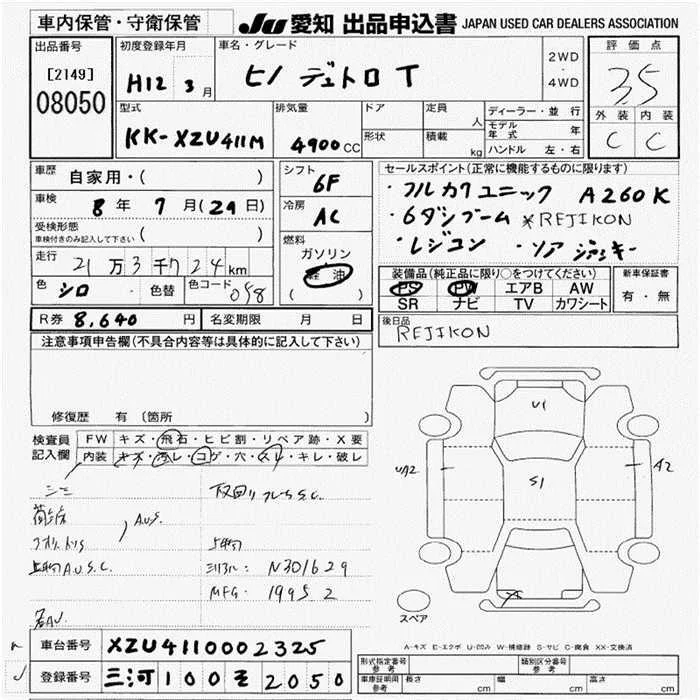 車内保管・守衛保管
Ju 愛知 出品申込書 JAPAN USED CAR DEALERS ASSOCIATION
出品番号
[2149]
08050
初度登録年月
H12 3月
車名・グレード
ヒノ デュトロ T
2WD
・
4WD
評価点
3.5
外装 内装
C C
型式
KK-XZU411M
排気量
4900cc
ドア
形状
定員
人
積載
kg
ディーラー・並行
モデル年式 年
ハンドル 左・右
車歴
自家用・( )
車検
8年 7月(29日)
受検形態
車検付きのみ記入して下さい ( )
走行
21万3千724km
色 シロ ・ 色替 色コード 058
R券 8,640円 名変期限 月 日
シフト
6F
冷房
AC
燃料
ガソリン
軽油
( )
セールスポイント(正常に機能するものに限ります)
・フルカワユニック A260K
・6ダンブーム *REJIKON
・レジコン ・ソアジャッキー
装備品(純正品に限り○をつけてください)
PS PW エアB AW
SR ナビ TV カワシート
新車保証書
有・無
後日品
REJIKON
注意事項申告欄(不具合内容等は具体的に記入して下さい)
修復歴 有 (箇所 )
検査員記入欄
FW キズ・飛石・ヒビ割・リペア跡・X要
内装 キズ・汚レ・コゲ・穴・スレ・キレ・破レ
A.U.S.
上物A.U.S.C.
シリアル: N301629
MFG. 1995 2
U1
UA2
S1
A2
X
スペア
A-キズ E-エクボ U-凹み W-補修跡 S-サビ C-腐食 XX-交換済
車台番号 XZU4110002325
登録番号 三河100そ2050
形式指定番号
参考
類別区分番号
参考
車庫証明用
参考
長さ cm 幅 cm 高さ cm